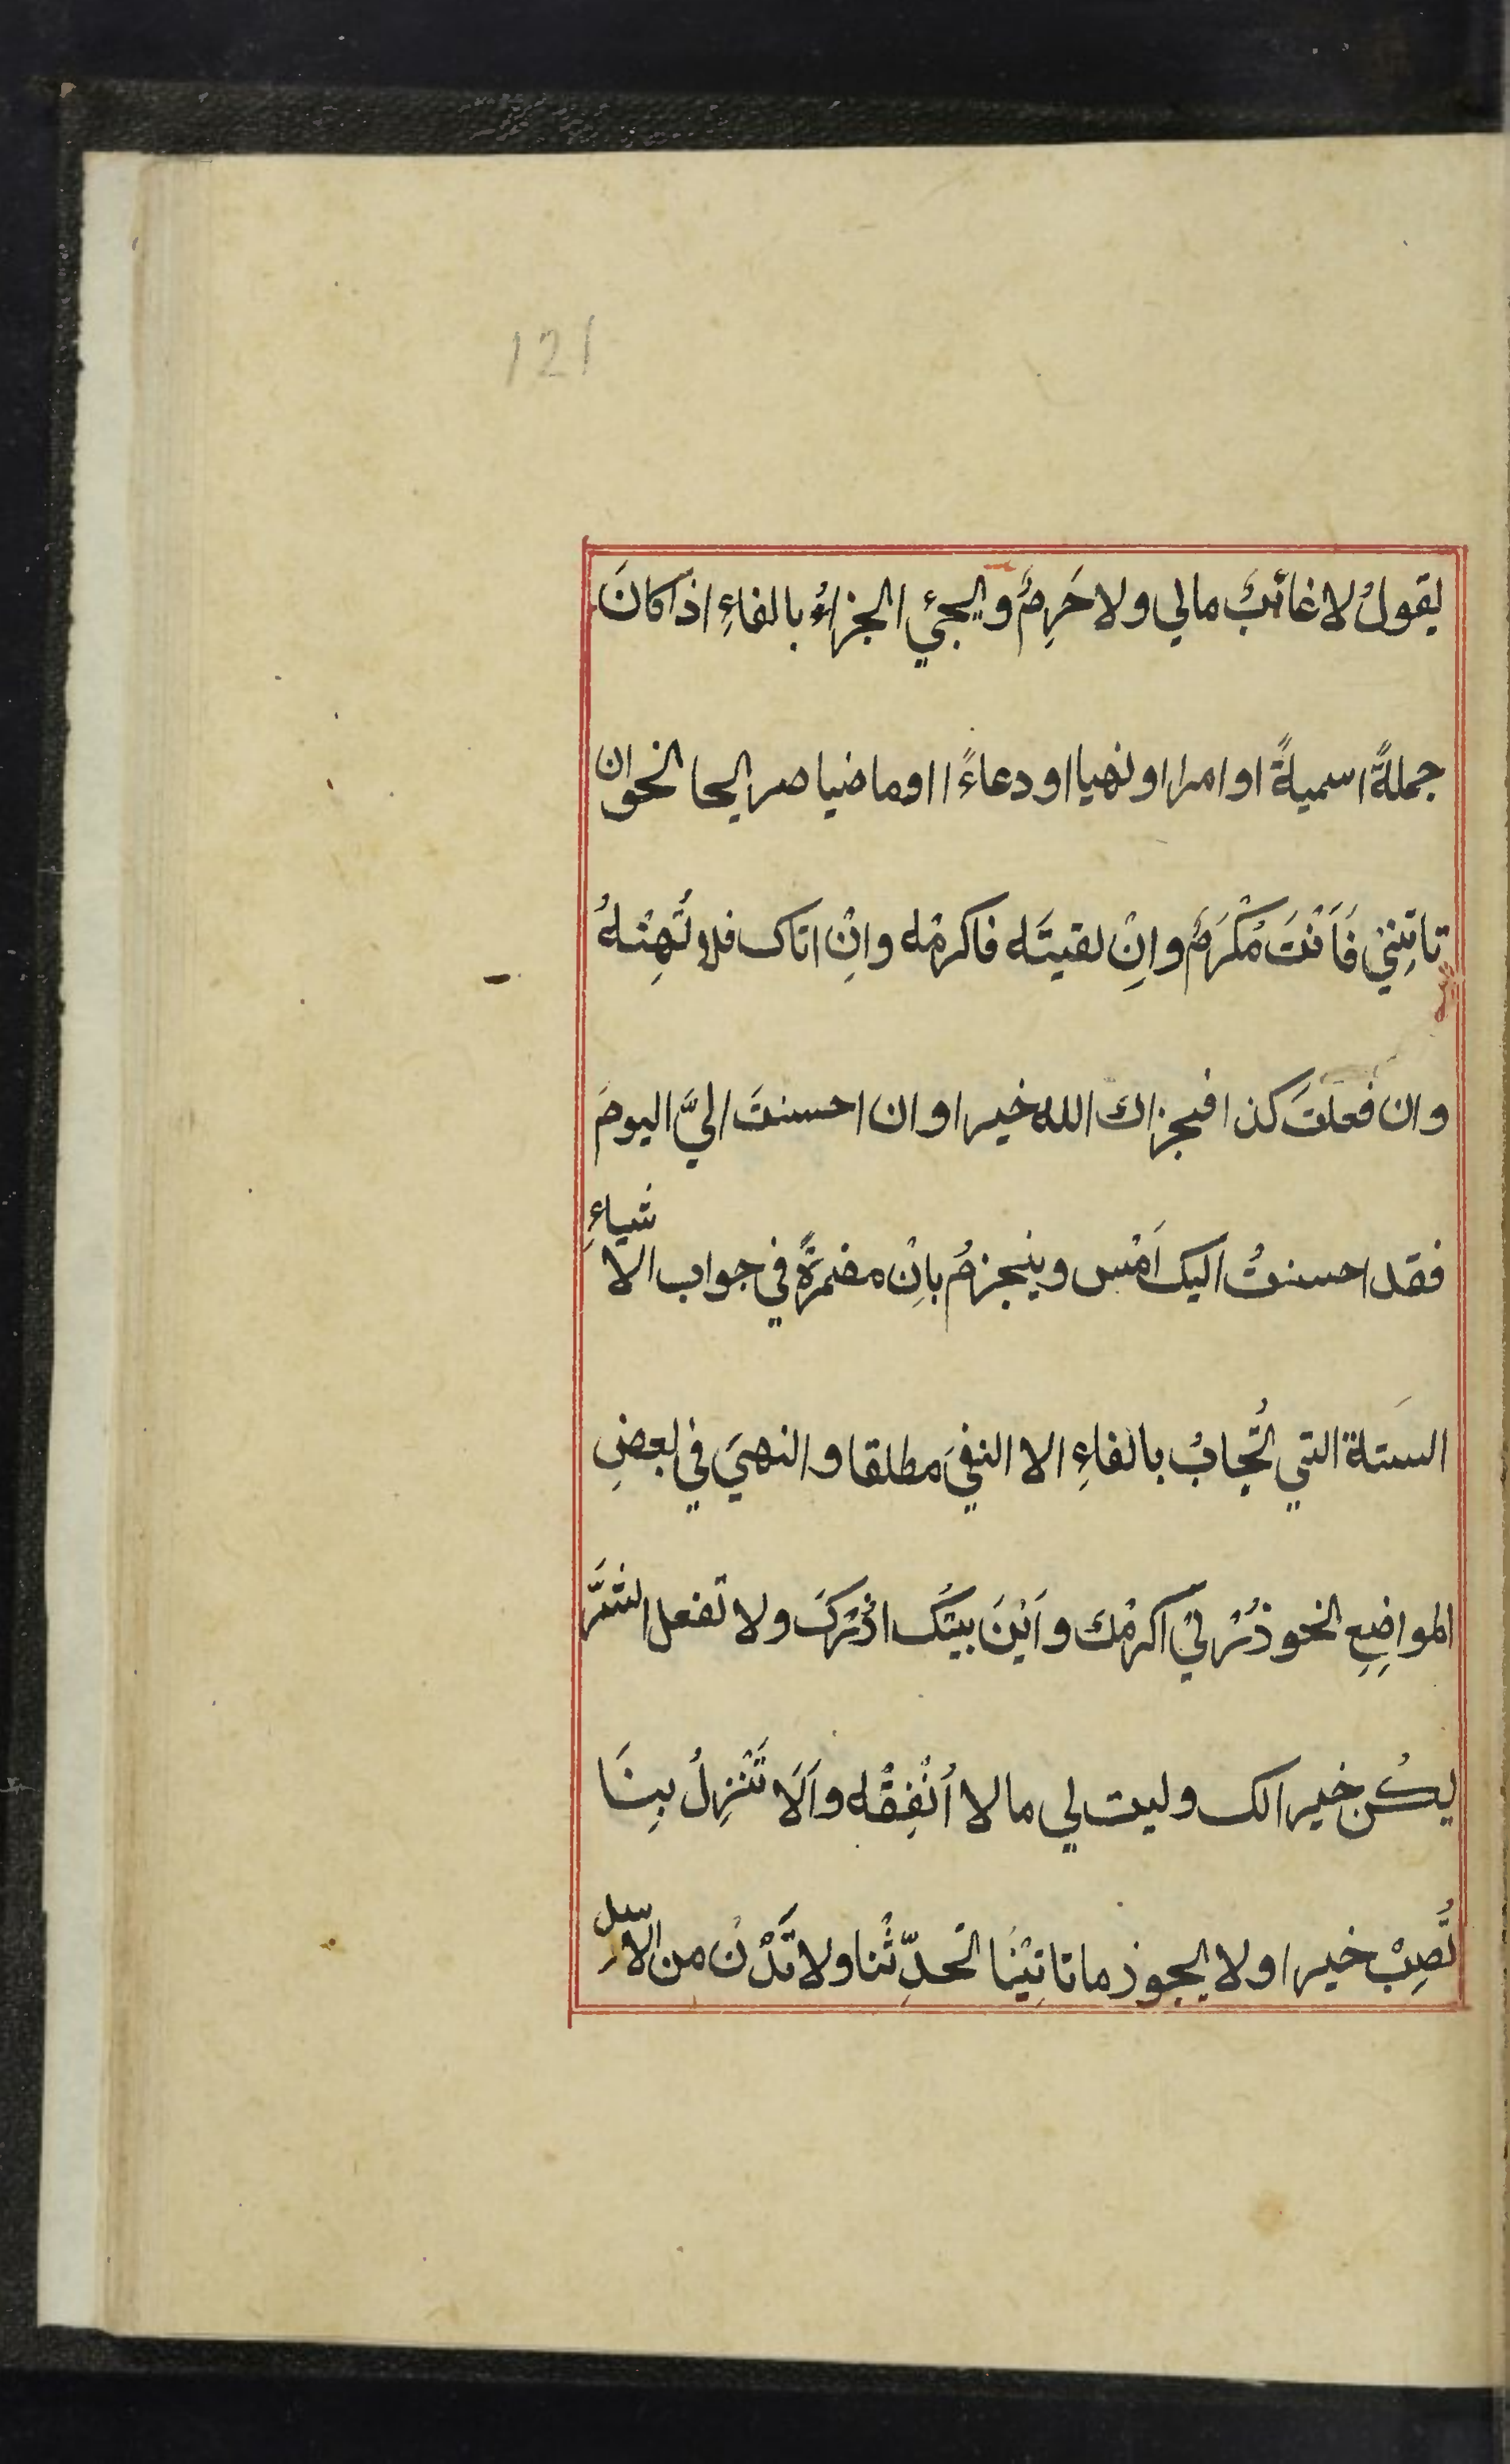 121
يقولُ لا غائبٌ مالي ولا حَرِمٌ ويجئ الجزاءُ بالفاءِ اذا كانَ
جملةً اسميةً او امرا او نهيا او دعاءً ا او ماضيا صريحا نحو ان
تاتِنِي فَاَنْتَ مُكْرَمٌ وانِْ لقيتَه فاكرمْه وانِْ اتاك فلا تُهِنْهُ
وان فعلتَ كذا فجزاك الله خيرا وان احسنتَ اليَّ اليومَ
فقد احسنتُ اليك اَمْس وينجزمُ باِنْ مضمرةً في جواب الا شياءِ
الستة التي تُجابُ بالفاءِ الا النفيَ مطلقا والنهيَ في بعضِ
المواضِعِ نحو زُرْنِيْ اكرمْك واَيْنَ بيتُك ازُرْكَ ولا تفعل الشَّرَّ
يكُنْ خيرا لك وليت لي مالا اُنْفِقْه واَلَا تَنْزِلُ بِنَا
تُصِبْ خيرا ولا يجوز ما تاتِيْنَا تحدِّثْنا ولا تَدْنُ من الاسل